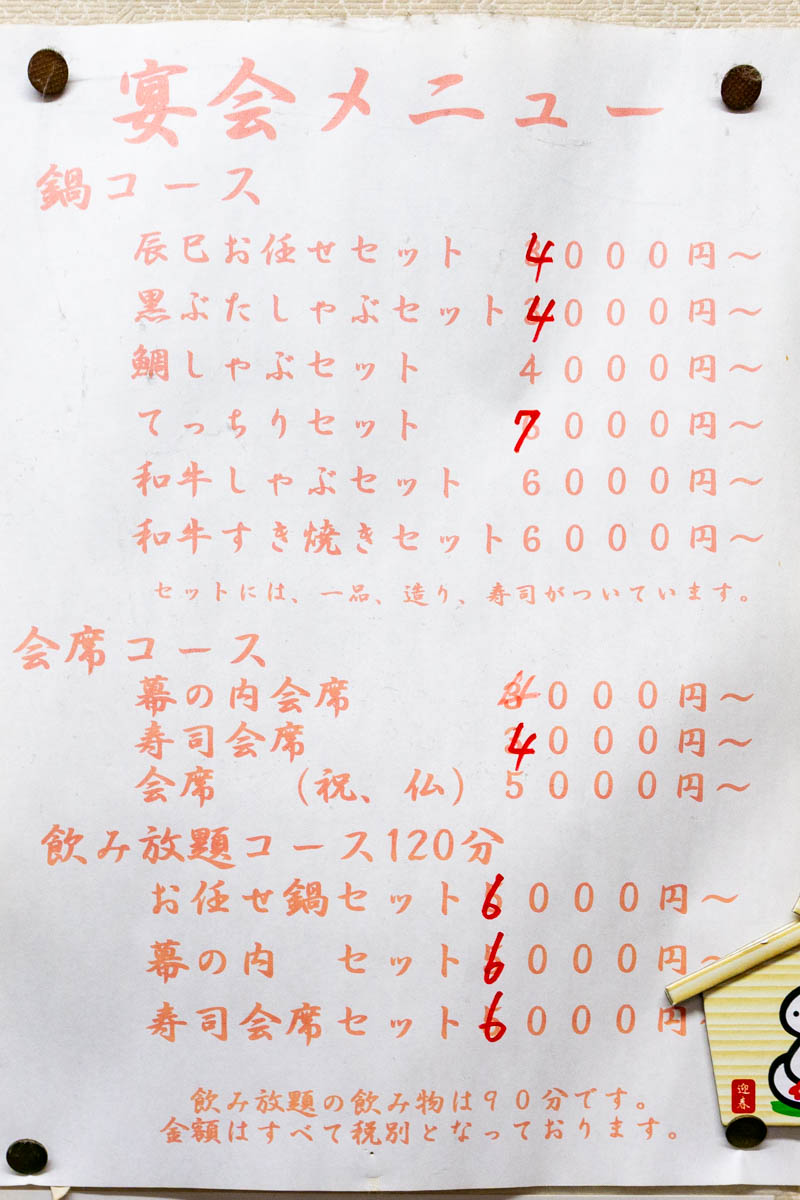 宴会メニュー
鍋コース
辰巳お任せセット 4000円～
黒ぶたしゃぶセット4000円～
鯛しゃぶセット 4000円～
てっちりセット 7000円～
和牛しゃぶセット 6000円～
和牛すき焼きセット6000円～
セットには、一品、造り、寿司がついています。
会席コース
幕の内会席 000円～
寿司会席 4000円～
会席 (祝、仏) 5000円～
飲み放題コース120分
お任せ鍋セット6000円～
幕の内 セット6000円～
寿司会席セット6000円～
飲み放題の飲み物は90分です。
金額はすべて税別となっております。
迎春